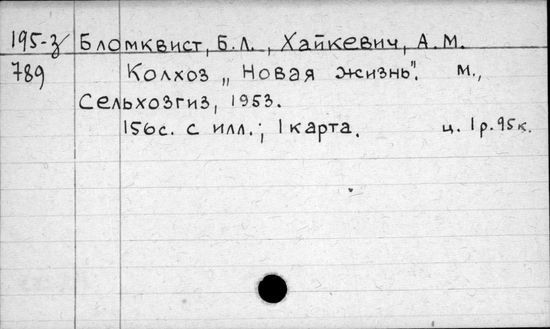 195-з Бломквист, Б.Л., Хайкевич, А.М.
789 Колхоз „Новая жизнь". М.,
Сельхозгиз, 1953.
156с. с илл.; 1 карта. ц. 1р.95к.